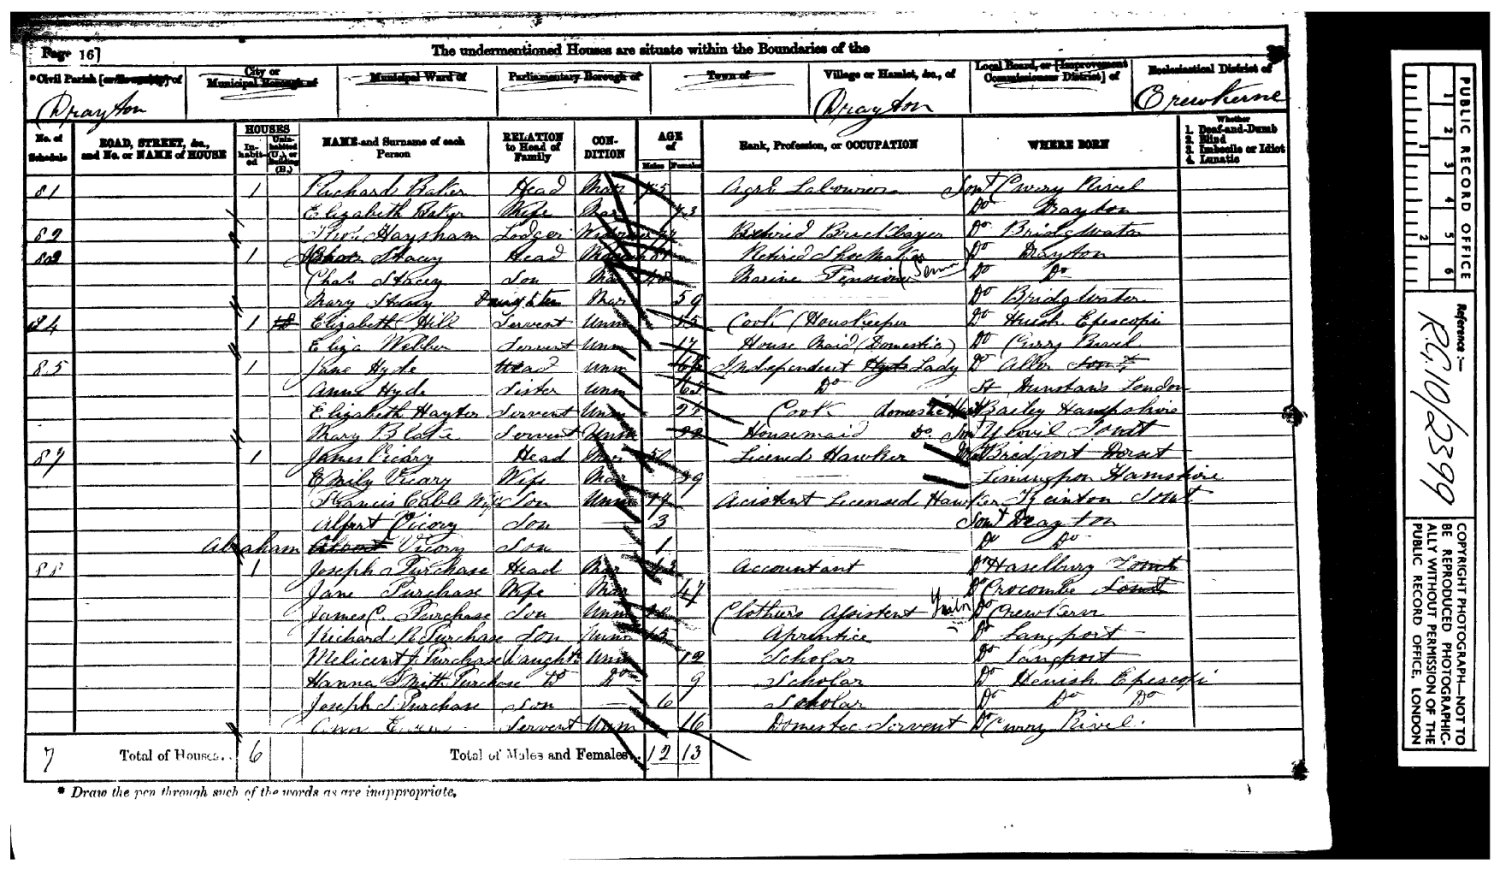 Page 16]
The undermentioned Houses are situate within the Boundaries of the
*Civil Parish [or Township] of
City or Municipal Borough of
Municipal Ward of
Parliamentary Borough of
Town of
Village or Hamlet, &c., of
Local Board, or [Improvement Commissioners District] of
Ecclesiastical District of
Drayton
Drayton
Crewkerne
No. of Schedule
ROAD, STREET, &c., and No. or NAME of HOUSE
HOUSES
In-habit-ed
Unin-habited (U.), or Building (B.)
NAME and Surname of each Person
RELATION to Head of Family
CON-DITION
AGE of
Males
Females
Rank, Profession, or OCCUPATION
WHERE BORN
Whether
1. Deaf-and-Dumb
2. Blind
3. Imbecile or Idiot
4. Lunatic
81 1 Richard Baker Head Mar 75 Agrl Labourer Somt Curry Rivel
Elizabeth Baker Wife Mar 73 Do Drayton
82 Haysham Lodger Retired Bricklayer Do Bridgwater
1 Stacy Head Retired Do Drayton
Chas Stacey Son Mar Marine Pensioner Do Do
Mary Daughter Mar 59 Do Bridgwater
84 1 Elizabeth Hill Servent Unm Cook / Houskeeper Do Huish Epescopi
Eliza Webber Servent Unm 17 House Maid (Domestic) Do Curry Rivel
85 1 Jane Hyde Head Unm Independent Lady Do Aller Somt
Anne Hyde Sister Unm 65 Do St Dunstans London
Elizabeth Hayter Servent Unm Cook domestic Bailey Hampshire
Mary Blake Servent Unm Housemaid Do Somt Yeovil Somt
87 1 James Vicary Head Mar 50 Licensed Hawker Bridport Dorset
Emily Vicary Wife Mar 39 Limington Hamshire
Francis Son Unm 17 Acistent Licensed Hawker Somt
Albert Vicary Son 3 Somt Drayton
Abraham Vicory Son 1 Do Do
88 1 Joseph Purchase Head Mar Accountant Do Haselbury Somt
Jane Purchase Wife Mar 47 Do Crocombe Somt
James C. Purchase Son Unm Clothiers Assistent Do Crewkern
Richard R Purchase Son Unm 15 Aprentice Do Langport
Melicent J Purchase Daughtr Unm 12 Scholar Do Langport
Hanna Smith Purchase Do Do 9 Scholar Do Heuish Epescopi
Joseph S. Purchase Son 6 Scholar Do Do Do
Ann Servent Unm 16 Domestic Servent Do Curry Rivel
7 Total of Houses.. 6 Total of Males and Females.. 12 13
* Draw the pen through such of the words as are inappropriate.
PUBLIC RECORD OFFICE
1 2 3 4 5 6
1 2
Reference :-
RG10/2399
COPYRIGHT PHOTOGRAPH—NOT TO
BE REPRODUCED PHOTOGRAPHIC-
ALLY WITHOUT PERMISSION OF THE
PUBLIC RECORD OFFICE, LONDON